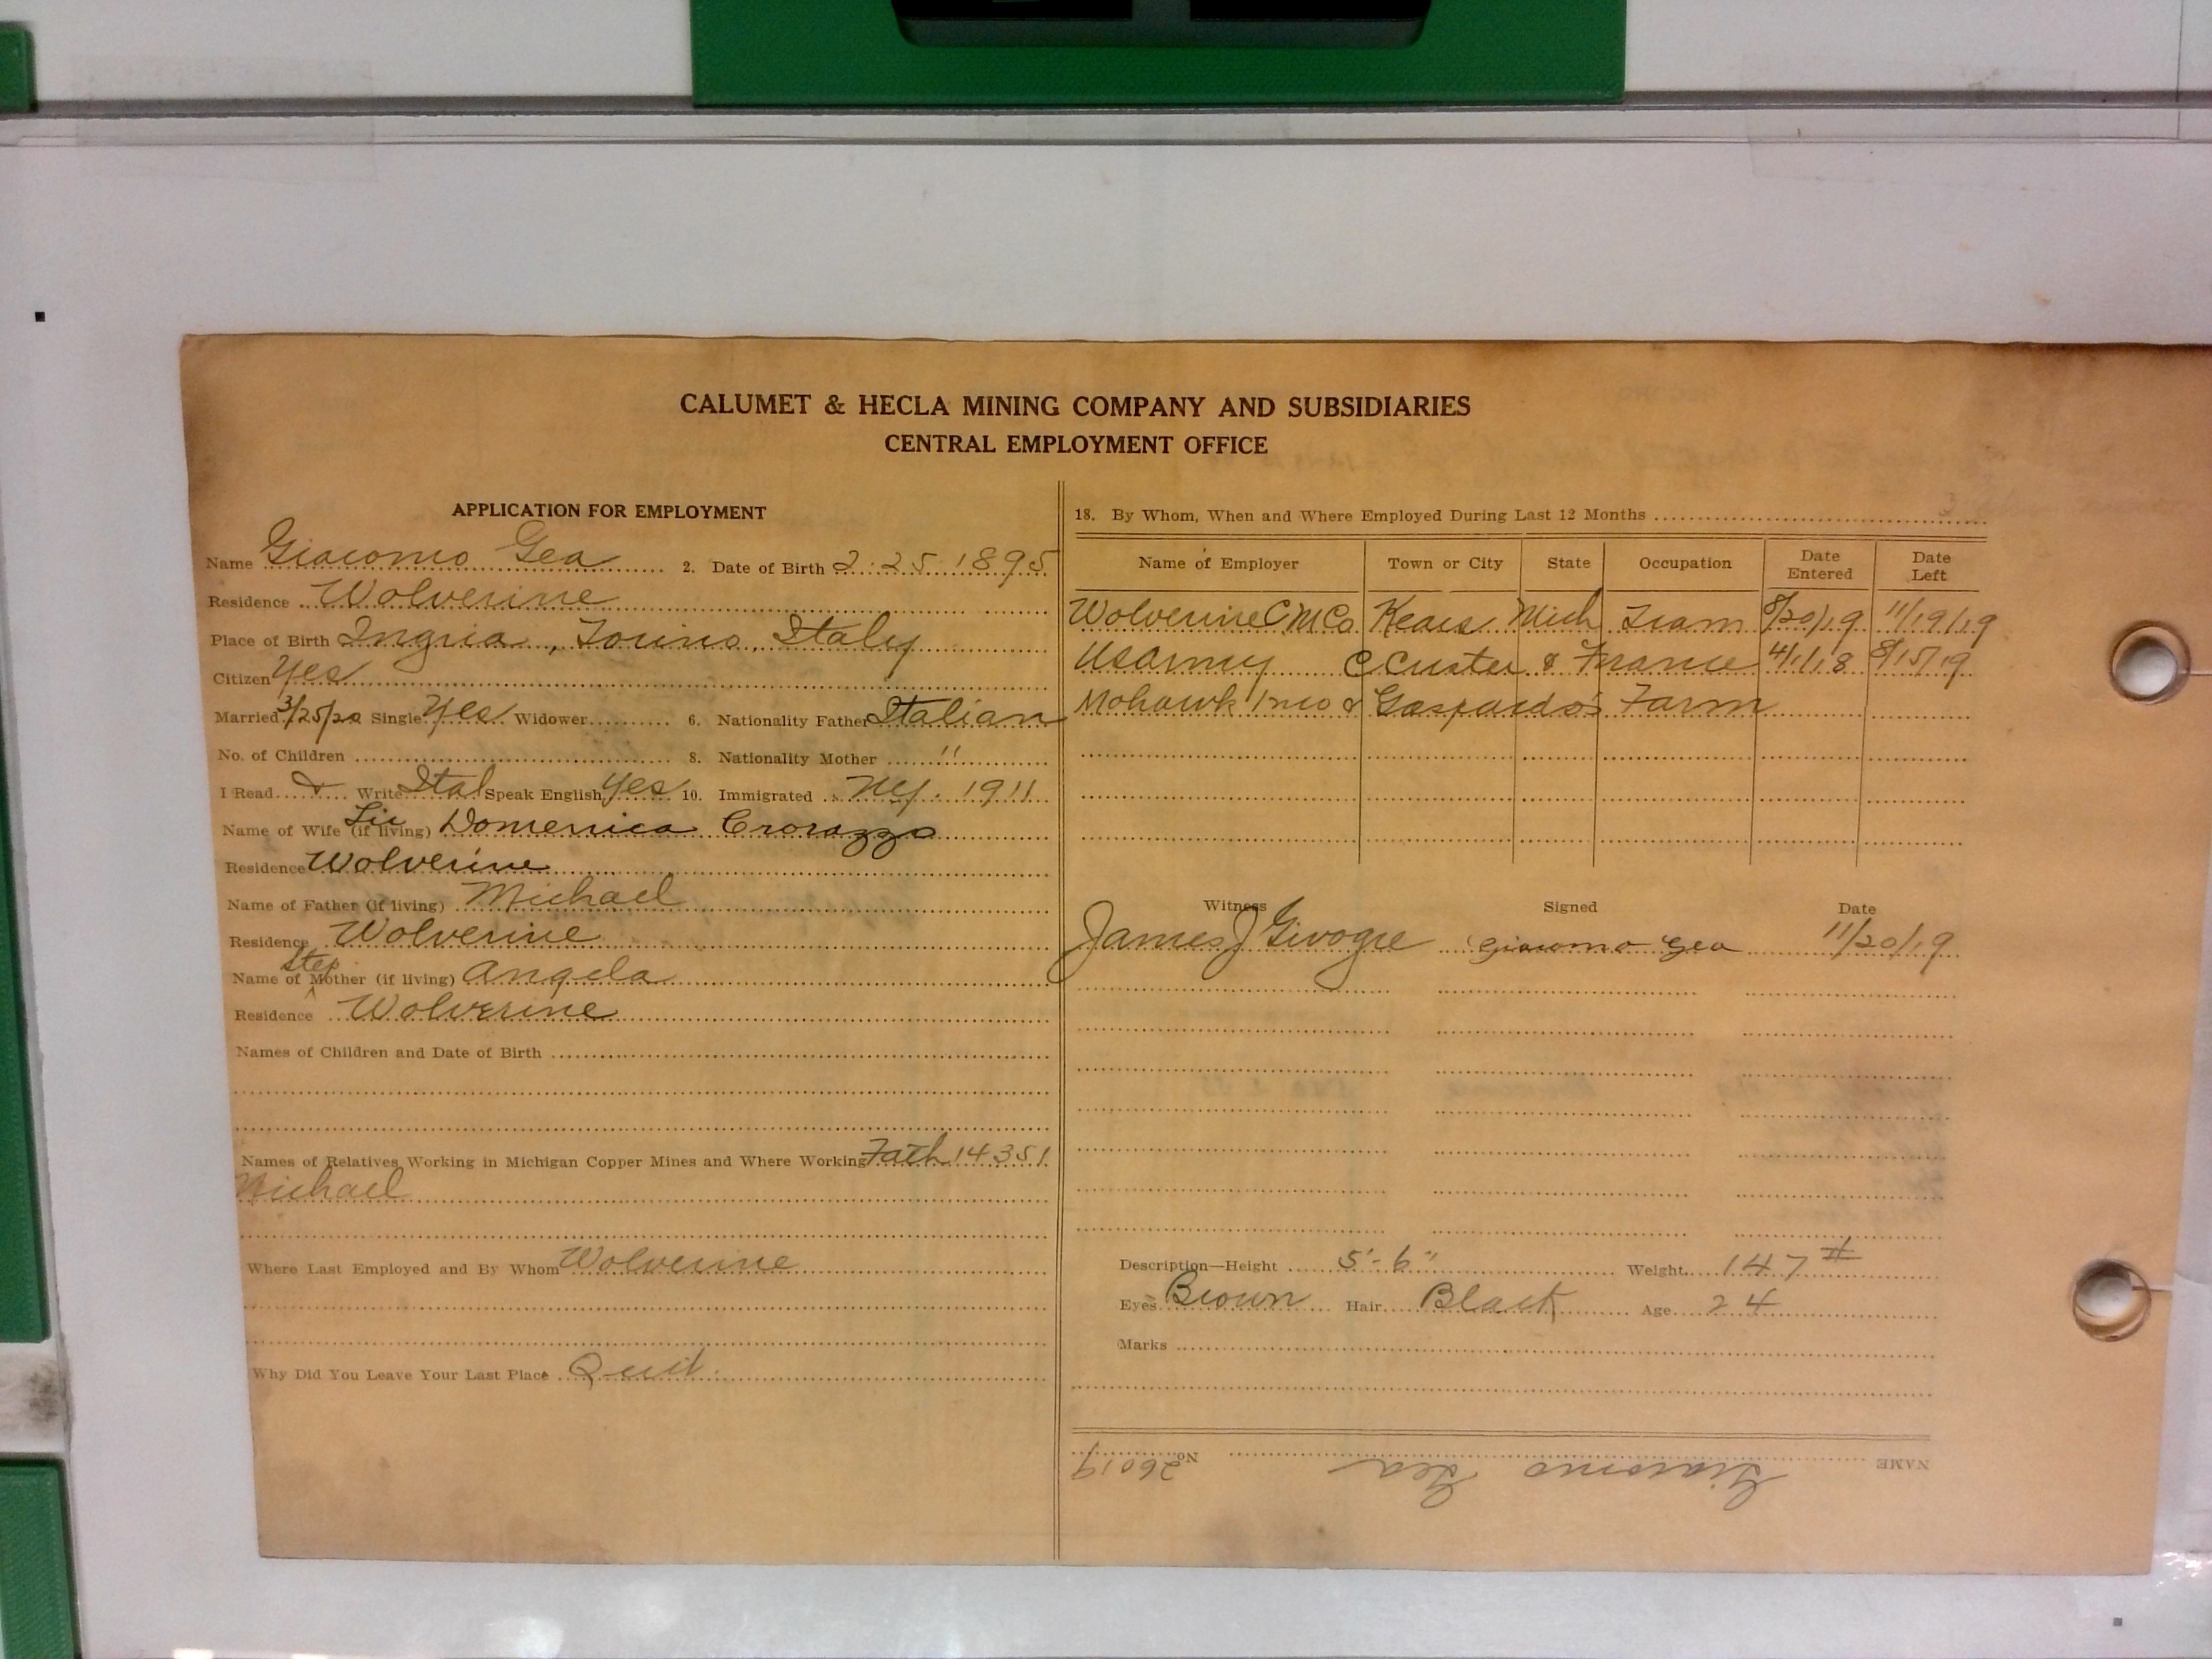 CALUMET & HECLA MINING COMPANY AND SUBSIDIARIES
CENTRAL EMPLOYMENT OFFICE
APPLICATION FOR EMPLOYMENT
Name Giacomo Gea 2. Date of Birth 2-25-1895
Residence Wolverine
Place of Birth Ingria, Torino, Italy
Citizen Yes
Married 3/25/20 Single Yes Widower 6. Nationality Father Italian
No. of Children 8. Nationality Mother "
I Read & Write Ital Speak English Yes 10. Immigrated NY. 1911
Name of Wife (if living) Domenica
Residence Wolverine
Name of Father (if living) Michael
Residence Wolverine
Name of Step Mother (if living) Angela
Residence Wolverine
Names of Children and Date of Birth
Names of Relatives Working in Michigan Copper Mines and Where Working Fath 14351
Michael
Where Last Employed and By Whom Wolverine
Why Did You Leave Your Last Place Quit.
18. By Whom, When and Where Employed During Last 12 Months
Name of Employer Town or City State Occupation Date Entered Date Left
Wolverine C M Co Kears Mich Tram 8/20/19 11/19/19
US Army C Custer & France 4/1/18 8/15/19
Mohawk 1 mo & Gaspardo's Farm
Witness Signed Date
James J Givogre Giacomo Gea 11/20/19
Description—Height 5'-6" Weight 147 #
Eyes Brown Hair Black Age 24
Marks
NAME Giacomo Gea No. 26019